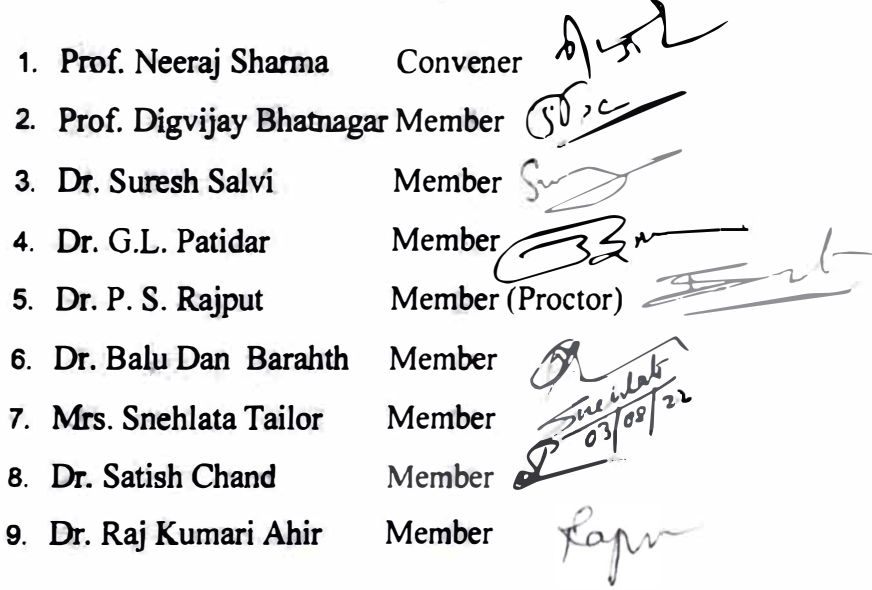 1. Prof. Neeraj Sharma Convener
2. Prof. Digvijay Bhatnagar Member
3. Dr. Suresh Salvi Member
4. Dr. G.L. Patidar Member
5. Dr. P. S. Rajput Member (Proctor)
6. Dr. Balu Dan Barahth Member
7. Mrs. Snehlata Tailor Member Snehlata
03/08/22
8. Dr. Satish Chand Member
9. Dr. Raj Kumari Ahir Member